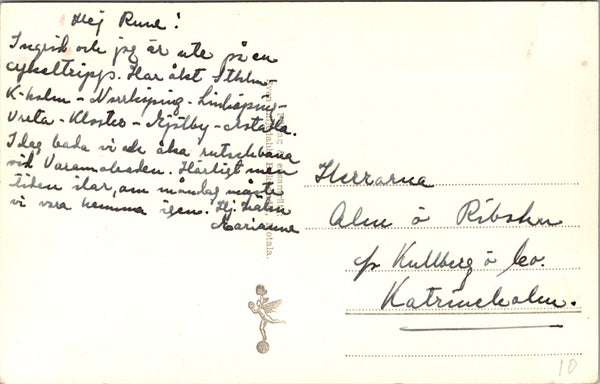 Hej Rune!
Ingrid och jag är ute på en
cykeltripp. Har åkt Sthlm-
K-holm - Norrköping - Linköping -
Vreta - Kloster - Motala.
Idag bada vi och åka rutschbana
vid Varamobaden. Härligt men
tiden ilar, om måndag måste
vi vara hemma igen. Hej
Marianne
Herrarna
Alm o
Kullberg o Co.
Katrineholm.
10